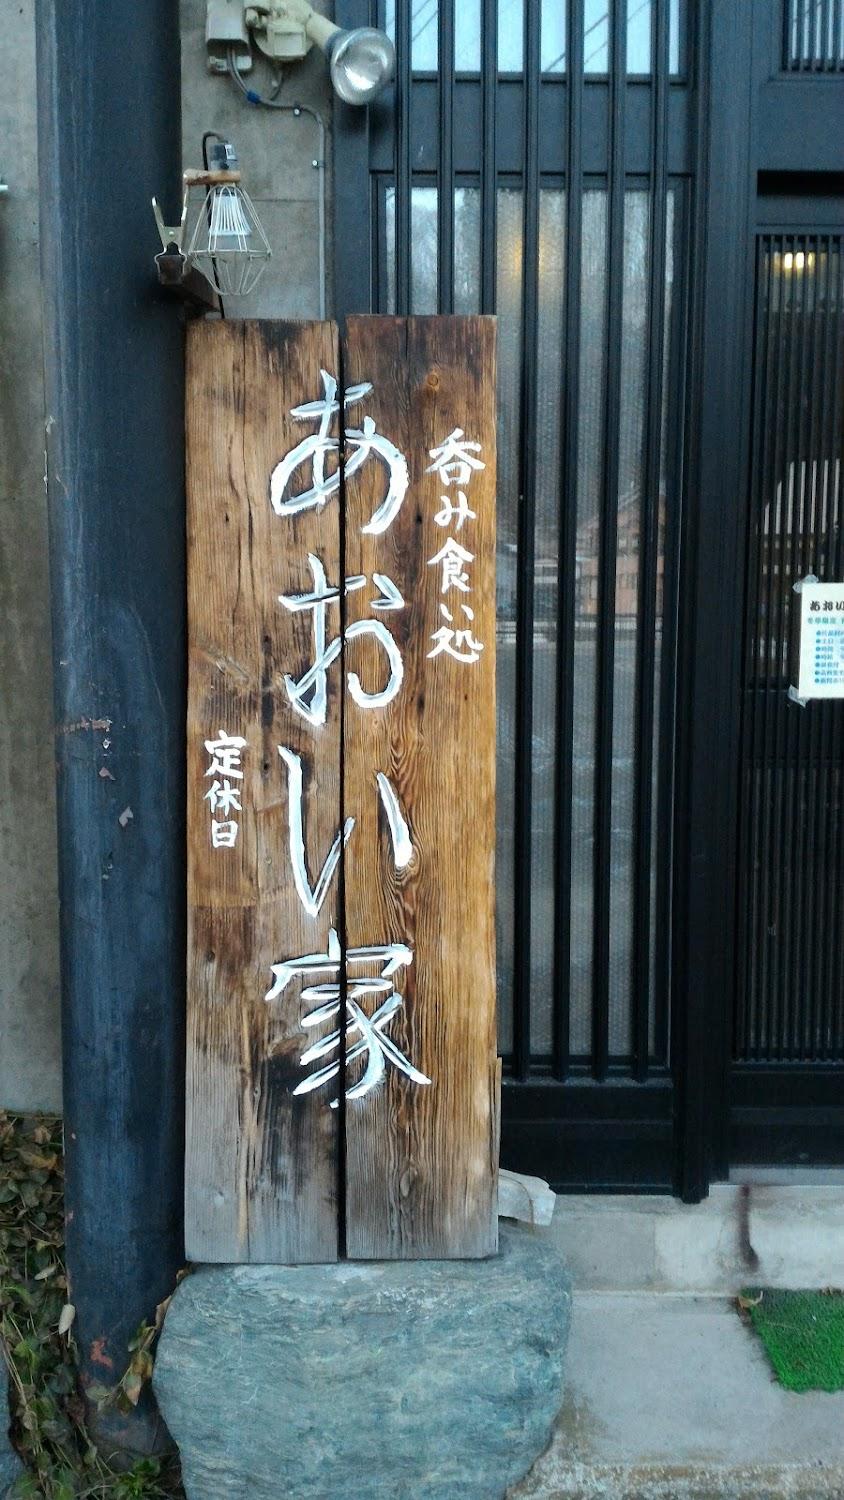 呑み食い処
あおい家
定休日
あおい